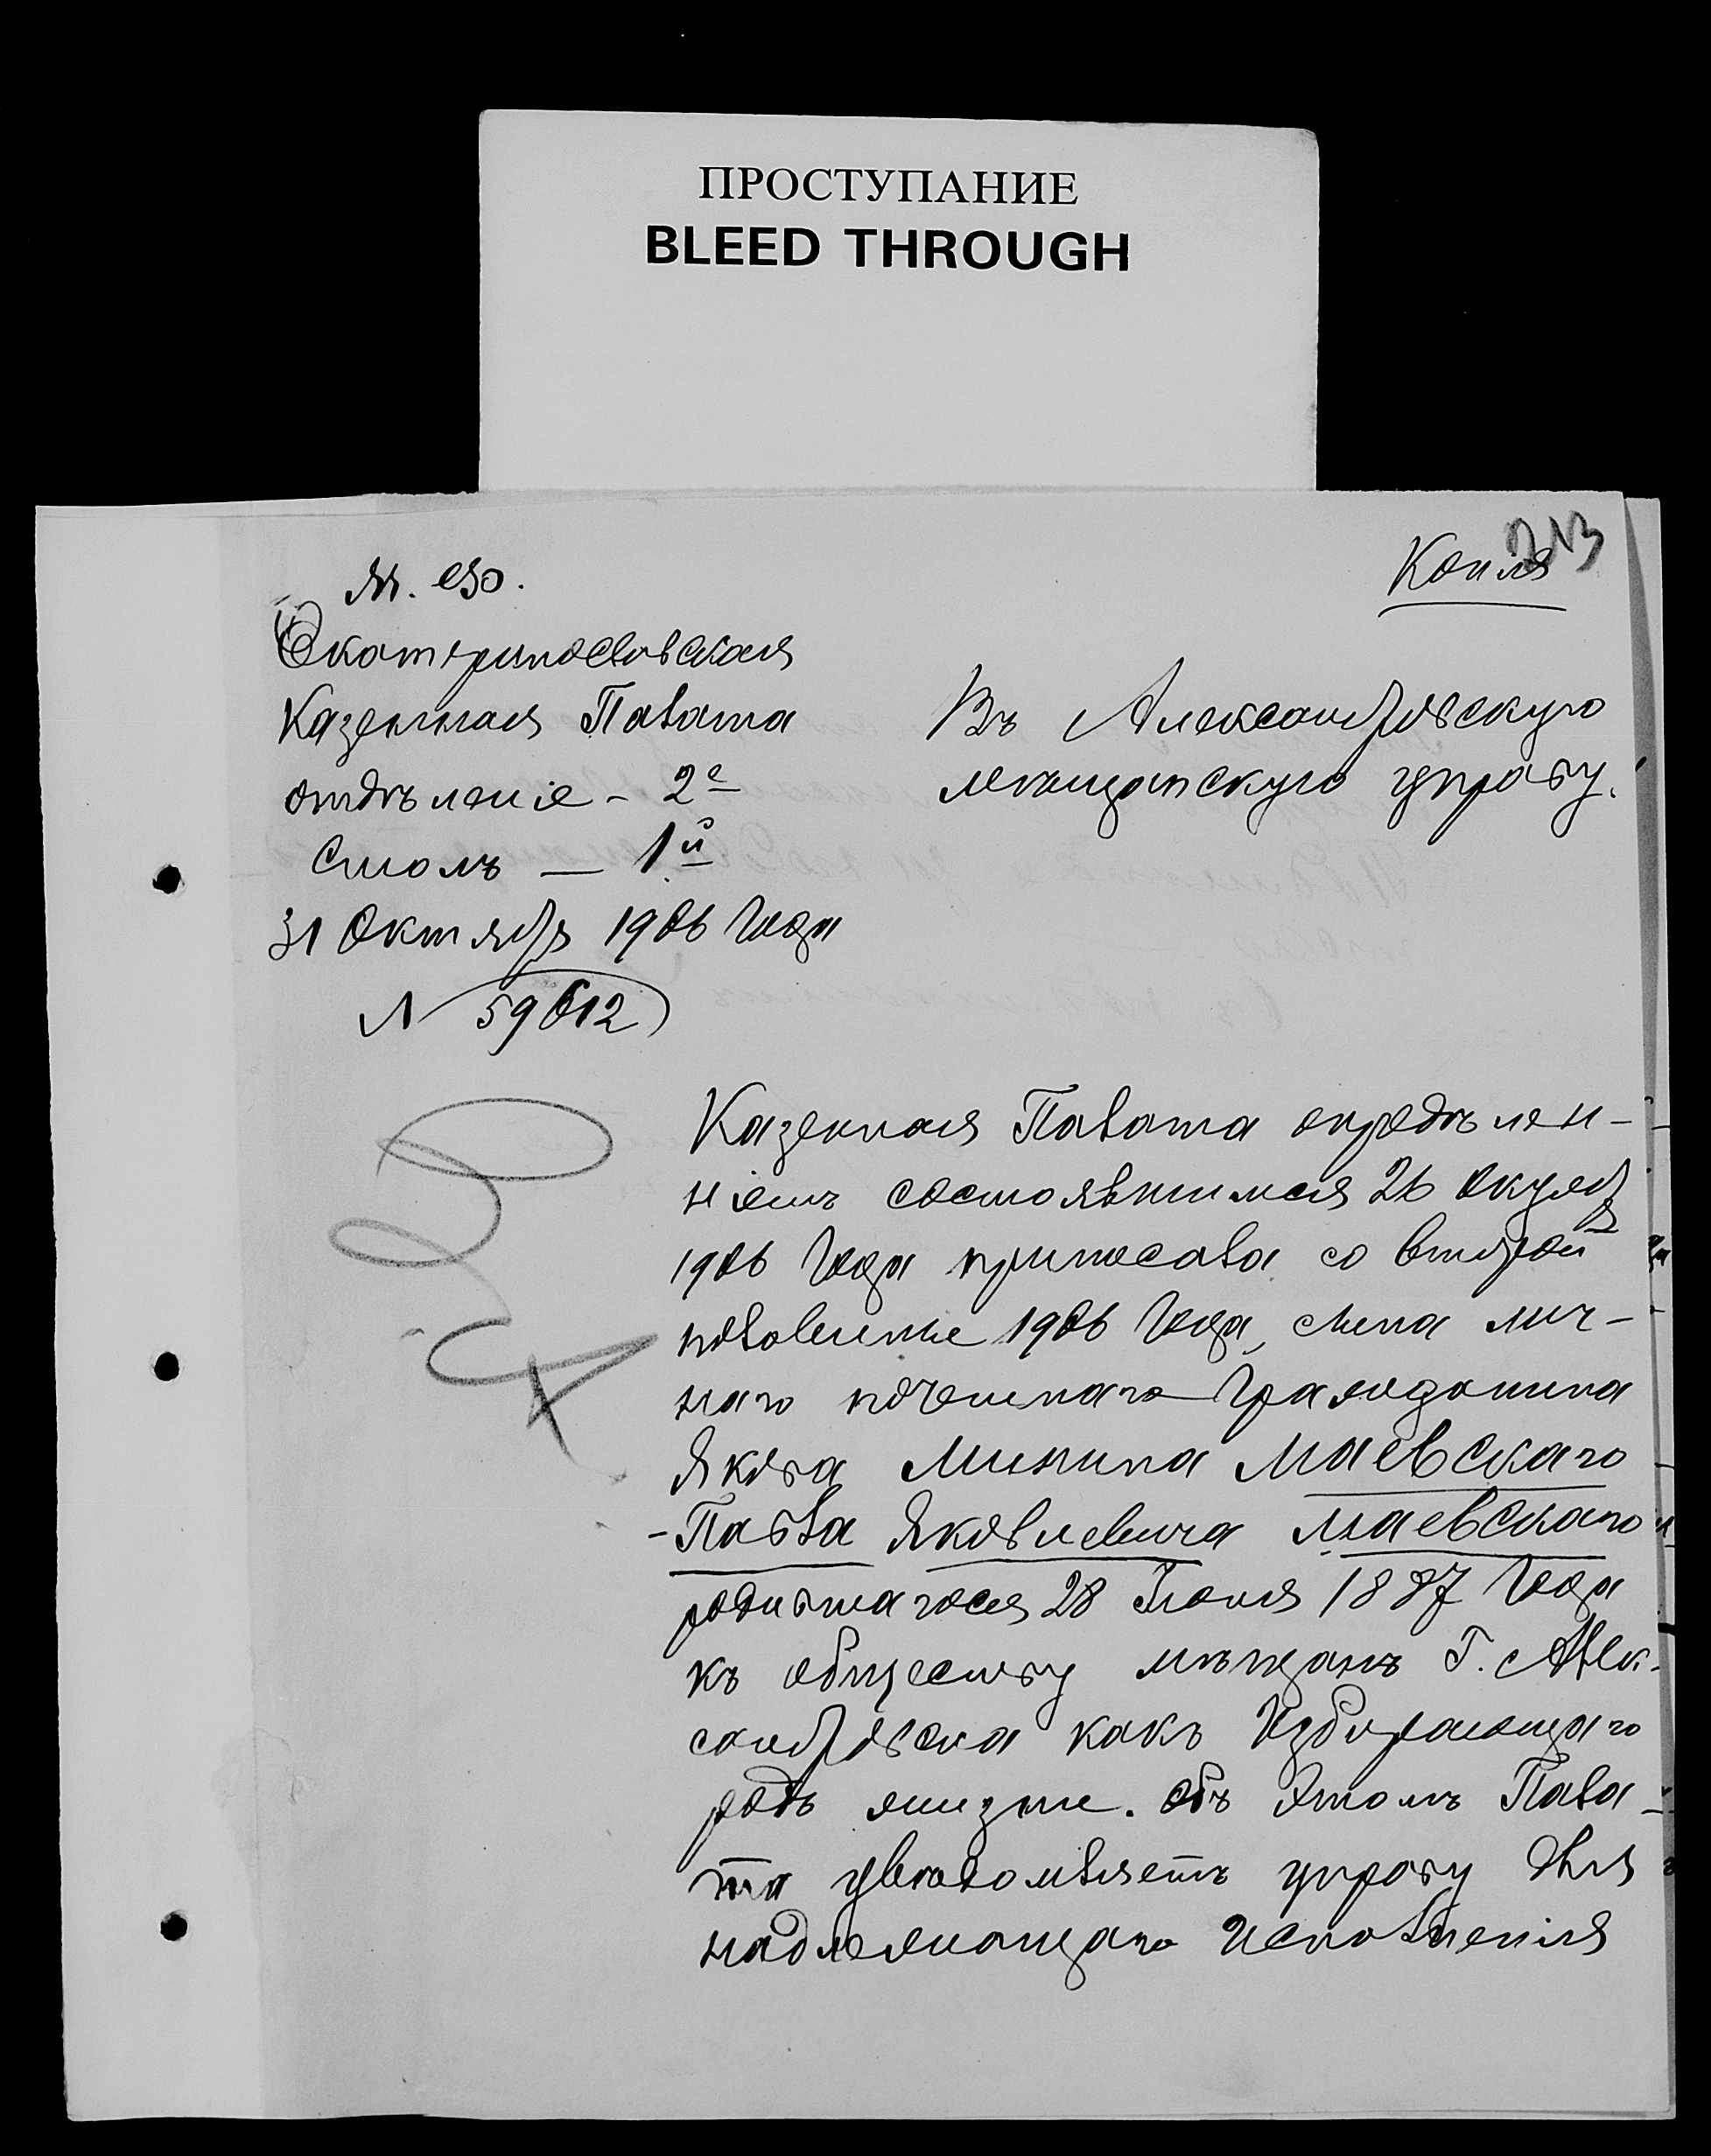 ПРОСТУПАНИЕ
BLEED THROUGH
213
Копія
М. В. Ф.
Екатеринославская
Казенная Палата
отдѣленіе - 2е
Столъ — 1й
31 Октября 1906 года
N 59612
Въ Александровскую
мещанскую управу.
Казенная Палата опредѣлен-
ніемъ состоявшимся 26 октяб
1906 года причислила со второй
половины 1906 года, сына лич-
наго почетнаго гражданина
Якова Минина Маевскаго
-Павла Яковлевича Маевскаго
родившагося 28 Іюня 1887 года
къ обществу мѣщанъ Г. Алек-
сандровска какъ избирающаго
родъ жизни. Объ этомъ Пала-
та увѣдомляетъ управу для
надлежащаго исполненія